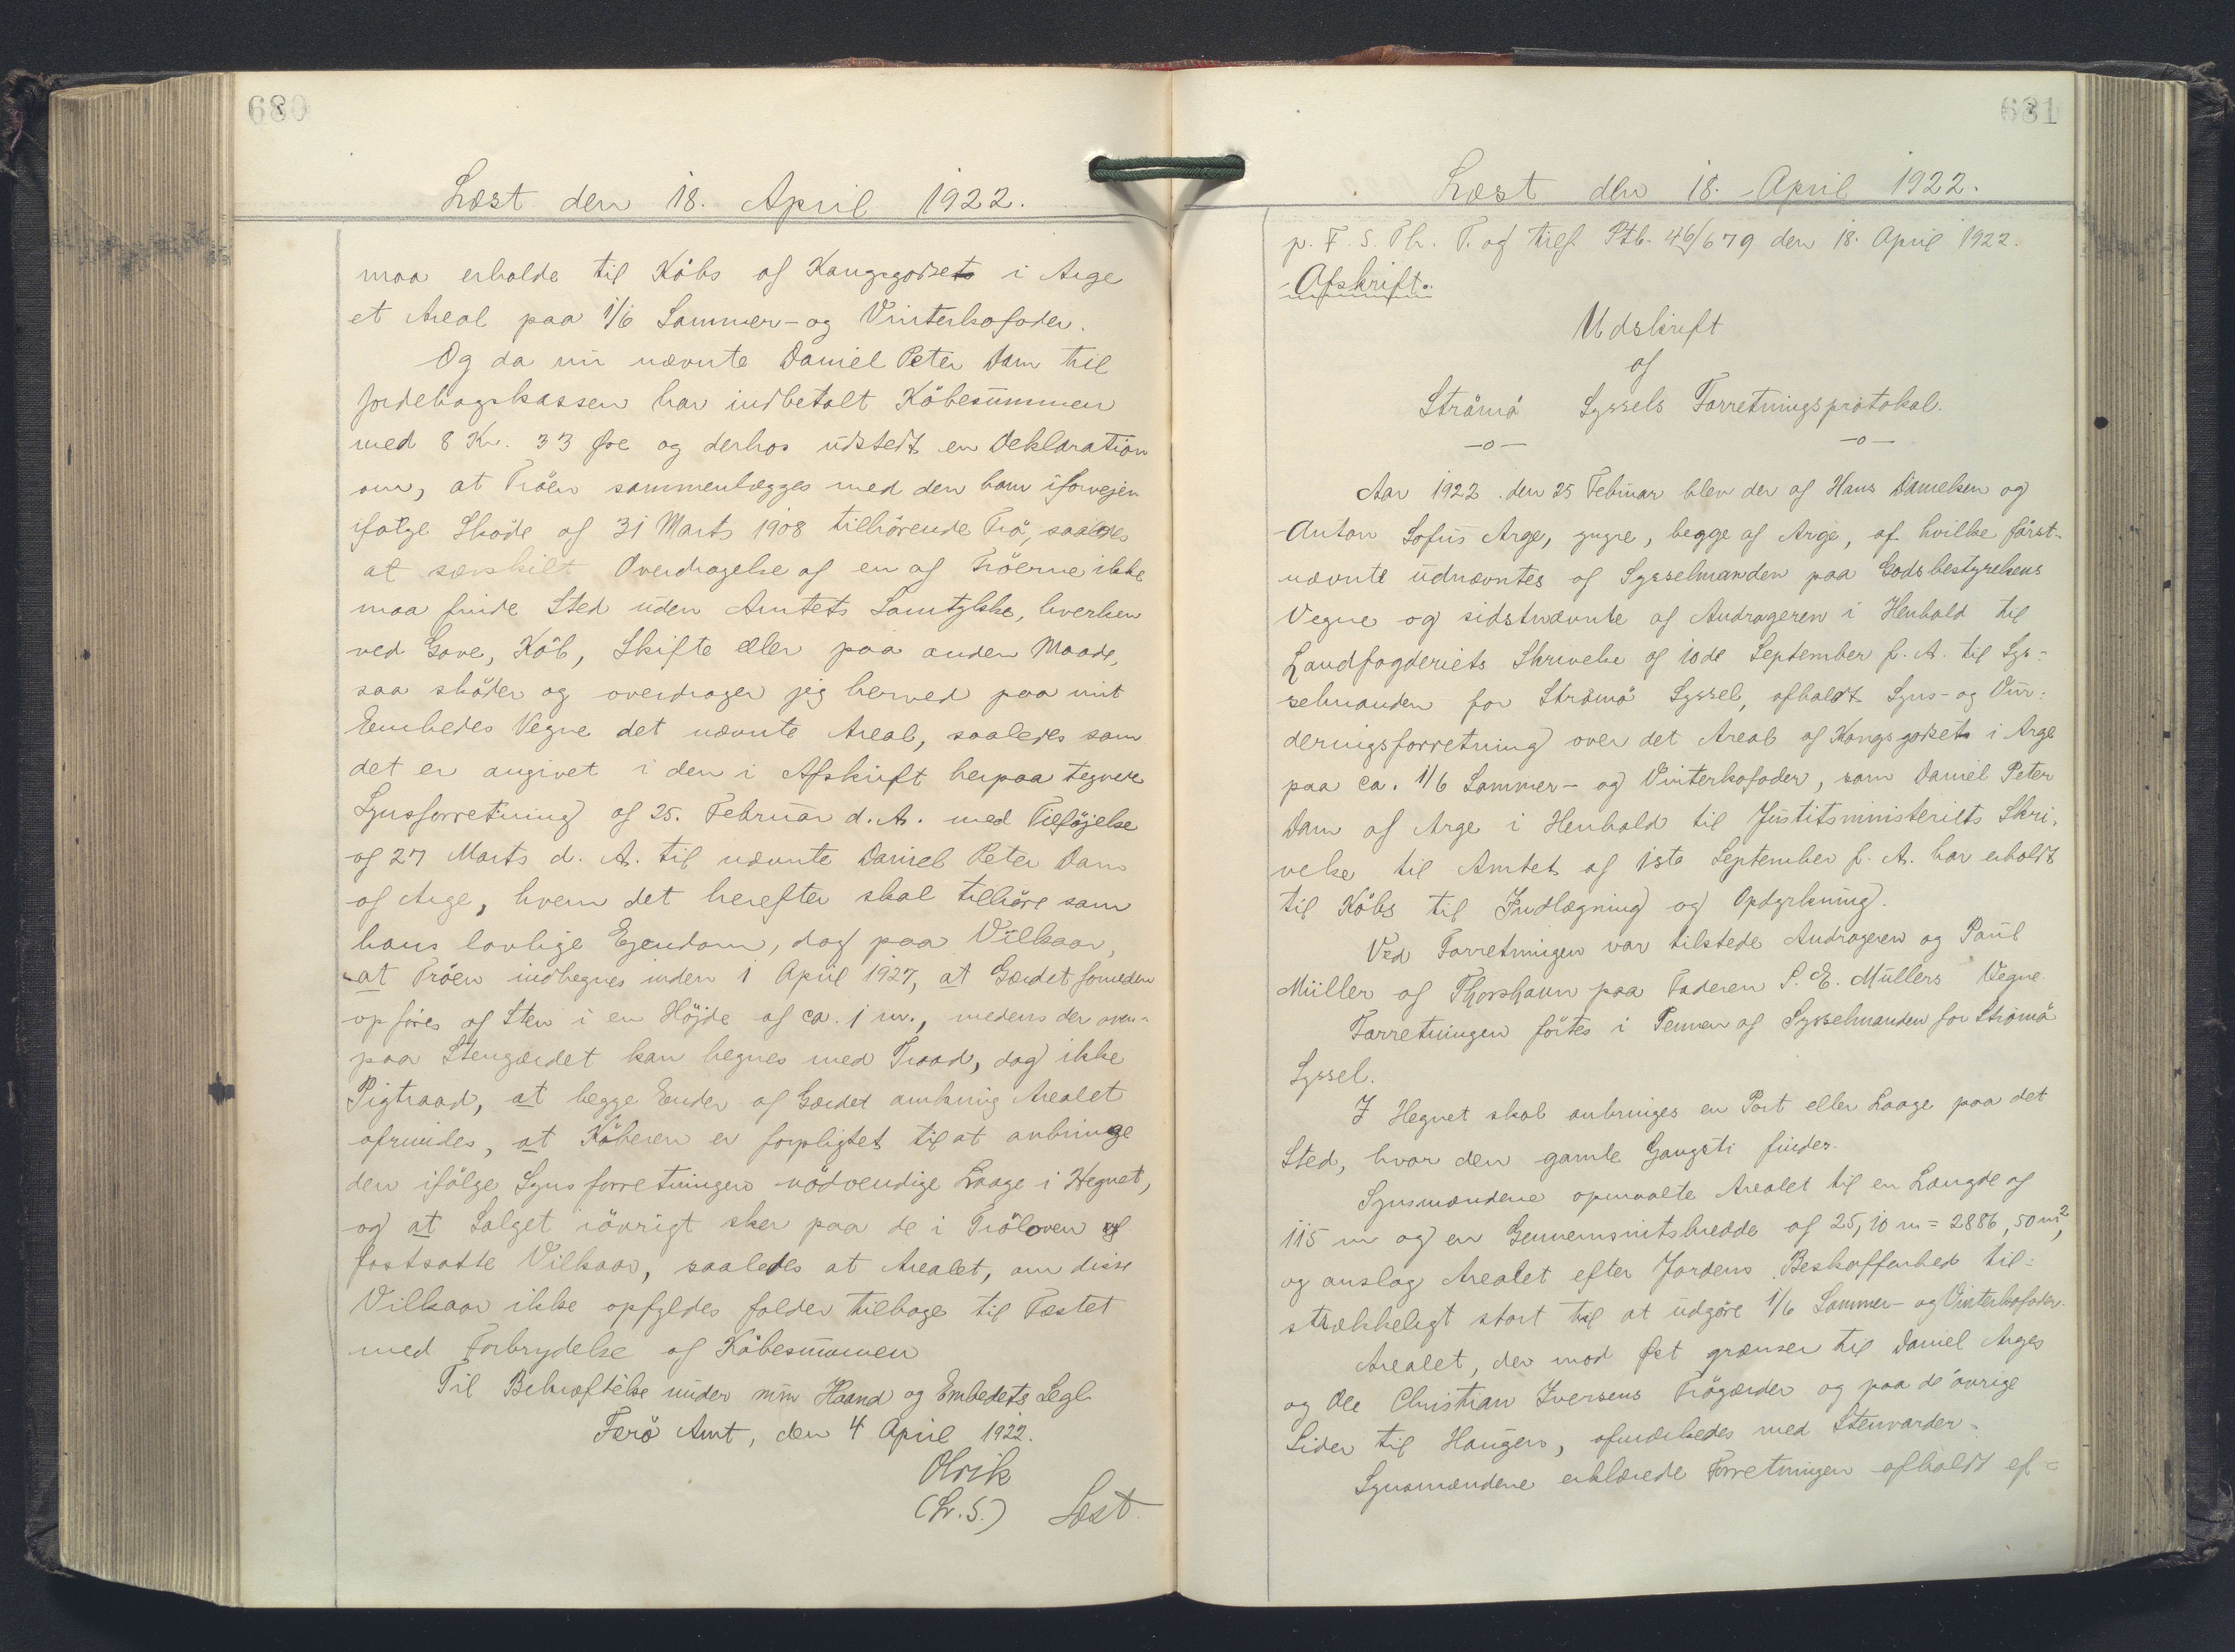 680
Læst den 18. April 1922.
maa erholde til Köbs af Kongsgodset i Arge
et Areal paa 1/6 Sommer- og Vinterkofoder.
Og da nu nævnte Daniel Peter Dam til
Jordebogskassen har indbetalt Köbesummen
med 8 Kr. 33 Øre og derhos udstedt en Deklaration
om, at Tröen sammenlægges med den ham iforvejen
ifølge Sköde af 31 Marts 1908 tilhörende Trö, saaledes
at særskilt Overdragelse af en af Tröerne ikke
maa finde Sted uden Amtets Samtykke, hverken
ved Gave, Köb, Skifte eller paa anden Maade,
saa sköder og overdrager jeg herved paa mit
Embedes Vegne det nævnte Areal, saaledes som
det er angivet i den i Afskrift herpaa tegnede
Synsforretning af 25. Februar d. A. med Tilføjelse
af 27 Marts d. A. til nævnte Daniel Peter Dam
af Arge, hvem det herefter skal tilhöre som
hans lovlige Ejendom, dog paa Vilkaar,
at Tröen indhegnes inden 1 April 1927, at Gærdet forneden
opföres af Sten i en Höjde af ca. 1 m., medens der oven-
paa Stengærdet kan hegnes med Traad, dog ikke
Pigtraad, at begge Ender af Gærdet omkring Arealet
afrundes, at Köberen er forpligtet til at anbringe
den ifölge Synsforretningen nödvendige Laage i Hegnet,
og at Salget iövrigt sker paa de i Tröloven af
fastsatte Vilkaar, saaledes at Arealet, om disse
Vilkaar ikke opfyldes falder tilbage til Fæstet
med Forbrydelse af Köbesummen
Til Bekræftelse under min Haand og Embedets Segl.
Færö Amt, den 4 April 1922.
Olrik
(L.S.) Læst.
681
Læst den 18. April 1922.
p. F. S. Th. T. og tilf. Ptb. 46/679 den 18. April 1922.
Afskrift.
Udskrift
af
Strömö Syssels Forretningsprotokol.
-o- -o-
Aar 1922 den 25 Februar blev der af Hans Danielsen og
Anton Sofus Arge, yngre, begge af Arge, af hvilke först-
nævnte udnævntes af Sysselmanden paa Godsbestyrelsens
Vegne og sidstnævnte af Andrageren i Henhold til
Landfogderiets Skrivelse af 10de September f. A. til Sys-
selmanden for Strömö Syssel, afholdt Syns- og Vur-
deringsforretning over det Areal af Kongsgodset i Arge
paa ca. 1/6 Sommer- og Vinterkofoder, som Daniel Peter
Dam af Arge i Henhold til Justitsministeriets Skri-
velse til Amtet af 1ste September f. A. har erholdt
til Köbs til Indlægning og Opdyrkning.
Ved Forretningen var tilstede Andrageren og Paul
Müller af Thorshavn paa Faderen S. E. Müllers Vegne.
Forretningen förtes i Pennen af Sysselmanden for Strömö
Syssel.
I Hegnet skal anbringes en Port eller Laage paa det
Sted, hvor den gamle Gangsti findes.
Synsmændene opmaalte Arealet til en Længde af
115 m og en Gennemsnitsbredde af 25,10 m = 2886,50 m²,
og anslog Arealet efter Jordens Beskaffenhed til-
strækkeligt stort til at udgöre 1/6 Sommer- og Vinterkofoder.
Arealet, der mod Øst grænser til Daniel Arges
og Ole Christian Iversens Trögærder og paa de övrige
Sider til Haugen, afmærkedes med Stenvarder.
Synsmændene erklærede Forretningen afholdt ef-